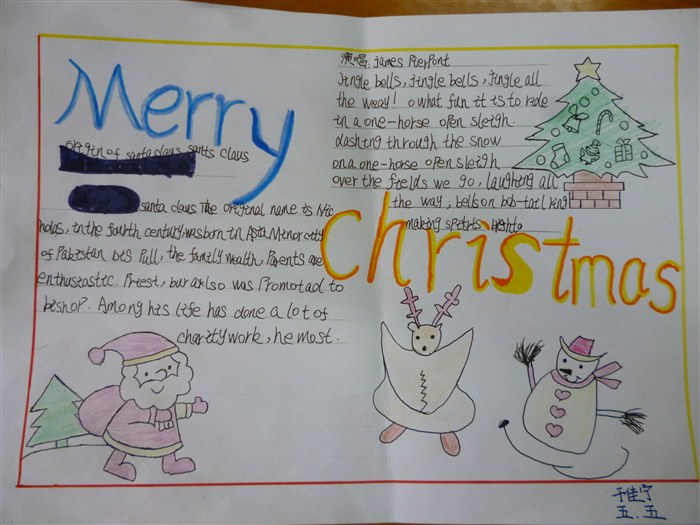 Merry
Christmas
origin of santa claus santa claus
santa claus The original name is Nic
holas, in the fourth century was born in Asia Minor city
of Pakistan bis Pull, the family wealth, Parents are
enthusiastic. Priest, but also was Promotad to
bishop. Among his life has done a lot of
charity work, he most.
演唱: James Pierpont
Jingle bells, jingle bells, jingle all
the weay! o what fun it is to ride
in a one-horse open sleigh.
dashing through the snow
on a one-horse open sleigh
over the fields we go, laughing all
the way, bells on bob-tail ring
making spirits bright.
于佳宁
五.五